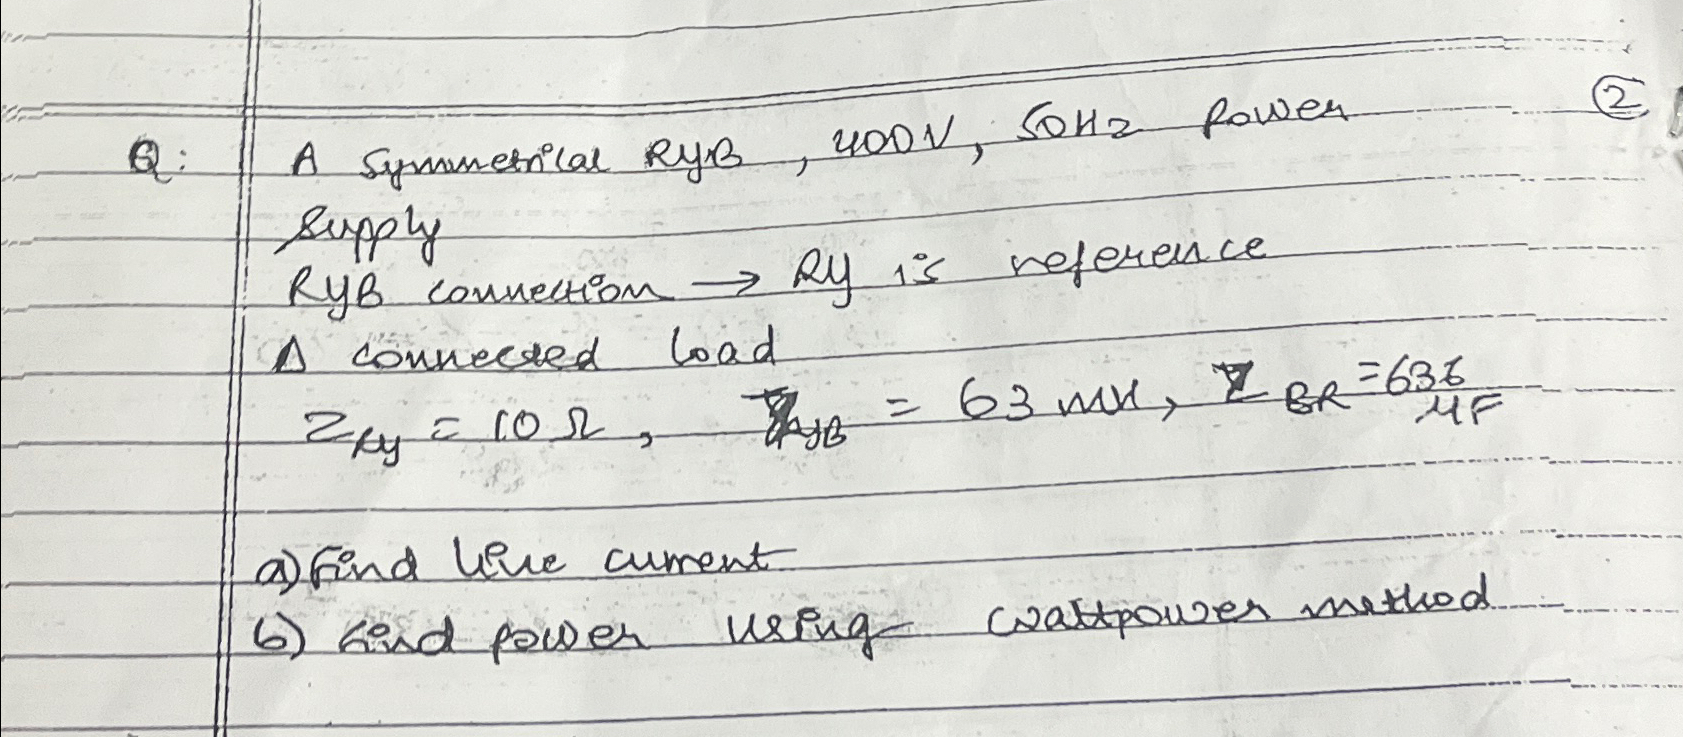 ②
Q: A Symmetrical RYB, 400V, 50Hz Power
Supply
RYB connection → RY is reference
Δ connected load
Z_RY = 10 Ω, Z_YB = 63 mH, Z_BR = 636 μF
a) Find line current
b) Find power using wattpower method